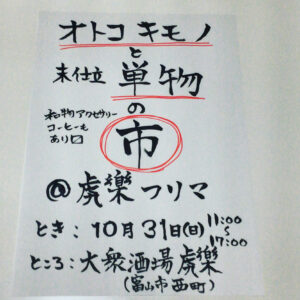 オトコ キモノ
と
未仕立 単物
の
和物アクセサリー
コーヒーも
あり〼
市
@ 虎樂フリマ
とき: 10月31日(日) 11:00〜17:00
ところ: 大衆酒場 虎樂
(富山市西町)